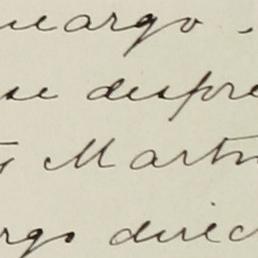 ncargo.
se despre
s Martin
rgo direc